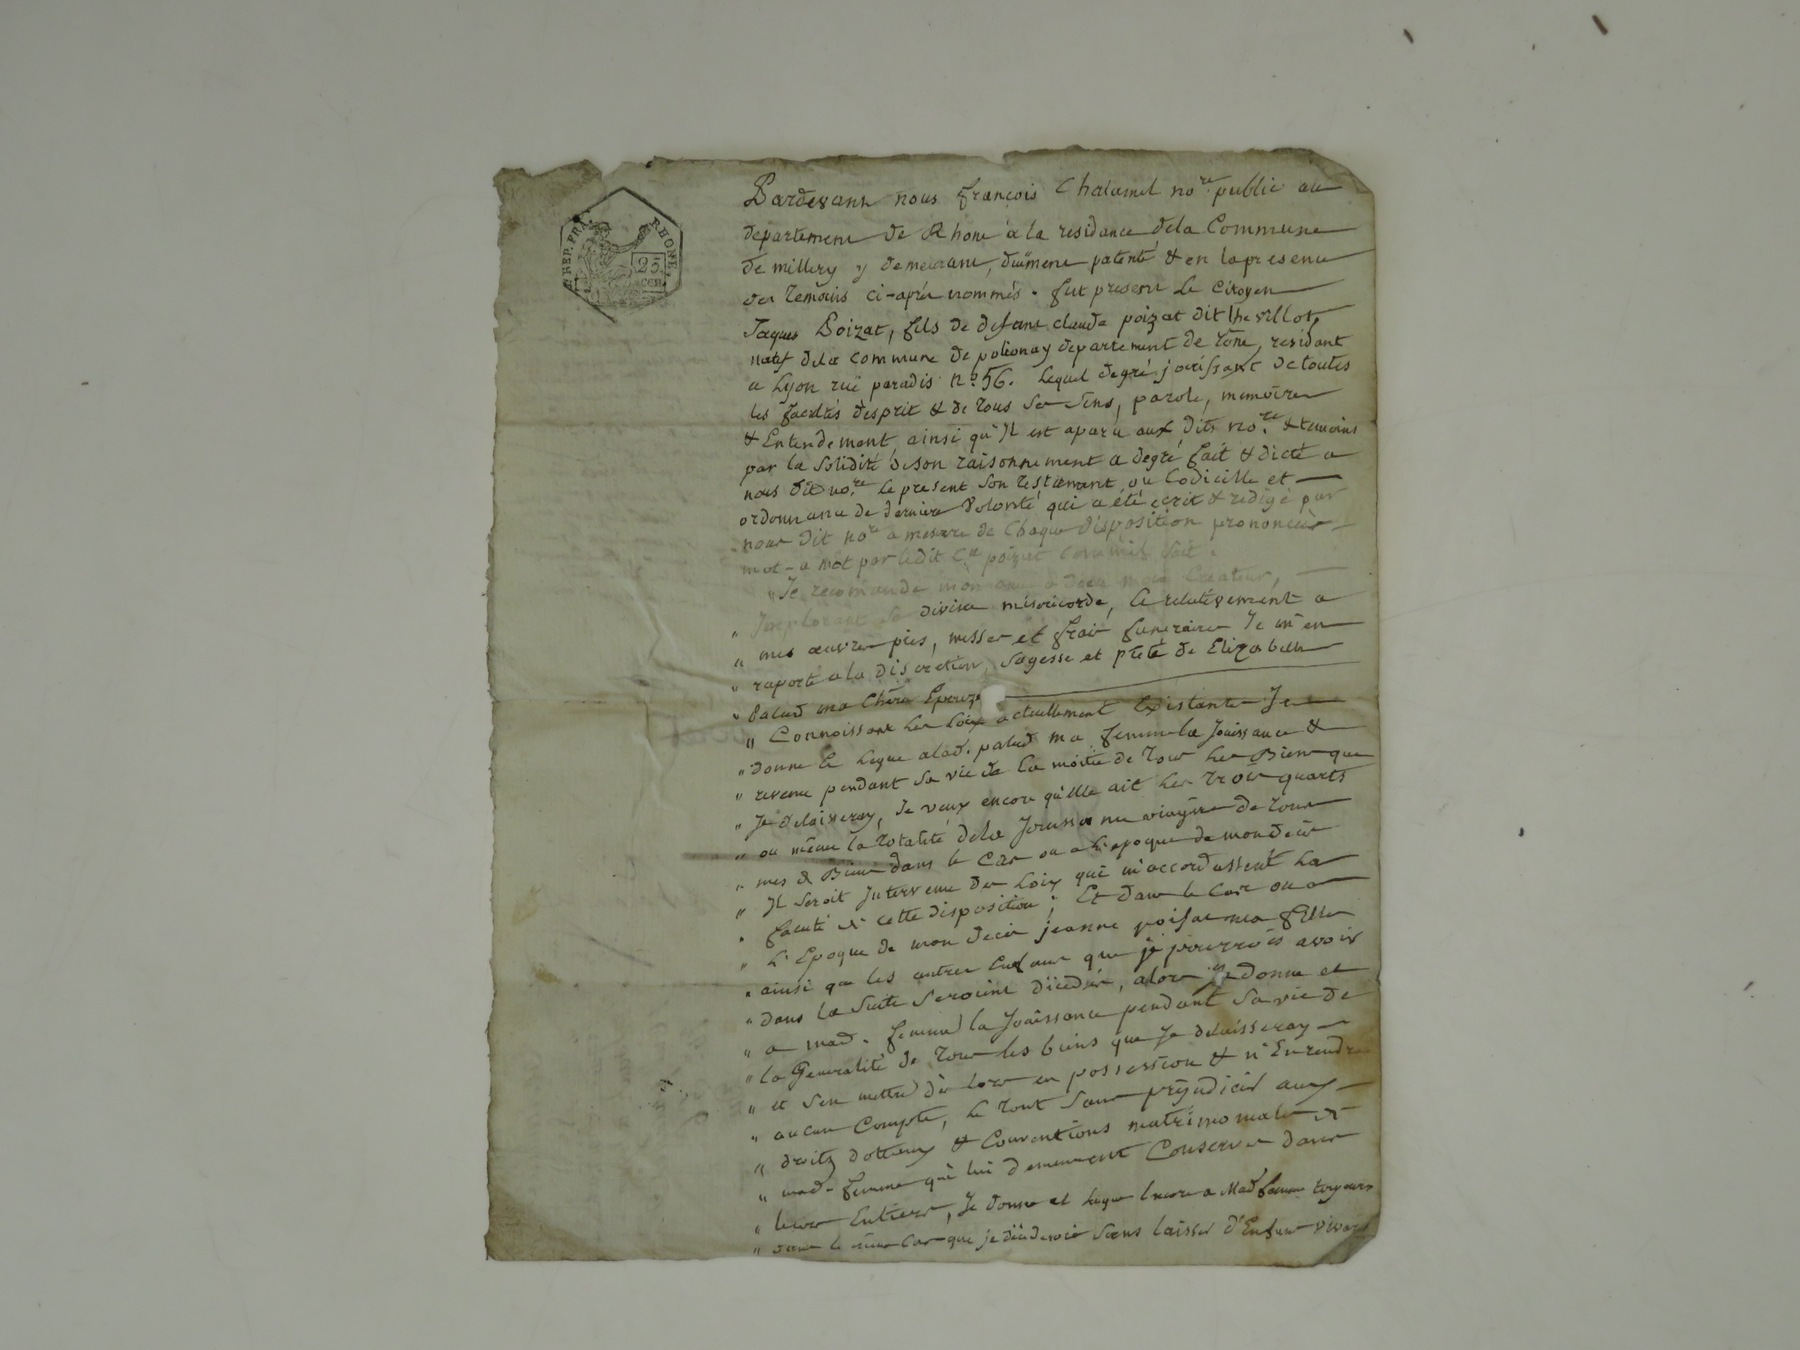 REP. FRA. RHONE.
25
CEN.
Pardevant nous françois Chalamel no.re public au
departement de Rhone à la residance dela Commune
de millery y demeurant, duëment patenté & en la presence
des temoins ci-après nommés. fut present le Citoyen
Jaques Poizat, fils de defunt claude poizat dit
natif dela commune de polionay departement de rône, residant
a Lyon rue paradis n.o 56. Lequel degré jouissant de toutes
les facultés desprit & de tous ses sens, parole, memoire
& Entendement ainsi qu'Il est aparu aux dits no.re & temoins
par la solidité deson raisonnement a degré fait & dicté a
nous dit no.re le present son testament ou Codicille et
ordonnance de derniere Volonté qui a été ecrit & redigé par
nous dit no.re a mesure de Chaque disposition prononcée
mot-a mot par ledit C.en poizat comme suit.
"Je recomande mon ame a dieu mon Créateur,
" Implorant sa divine misericorde, & relativement a
" mes œuvres pies, messes et frais funeraires Je m'en
" raporte a la discretion, sagesse et pieté de Elizabeth
" palud ma Chère Epouze
" Connoissant les Loix actuellement Existantes Je
" donne & legue alad. palud ma femme la Jouissance &
" revenu pendant sa vie de la moitié de tous les Biens que
" Je delaisseray, Je veux encore qu'elle ait les trois quarts
" ou même la totalité dela Jouissance viagère de tous
" mes d Biens dans le Cas ou a L'epoque de mon decès
" Il seroit Intervenu des Loix qui m'accordassent la
" faculté de cette disposition; Et dans le Cas ou a
" L'Epoque de mon decès jeanne poisat ma fille
" ainsi que les autres Enfans que je pourrois avoir
" dans la suite seroient décédés, alors je donne et
" a mad. femme la Jouissance pendant sa vie de
" la Generalité de tous les biens que Je delaisseray
" et s'en mettre dès lors en possession & n'En rendra
" aucun Compte, le tout sans préjudicier aux
" droits dottaux & Conventions matrimoniales de
" mad. femme qui lui demeurent Conservés dans
" leurs Entiers, Je donne et legue Encore a Mad femme toujours
" dans le même Cas que je décéderois sans laisser d'Enfans vivans